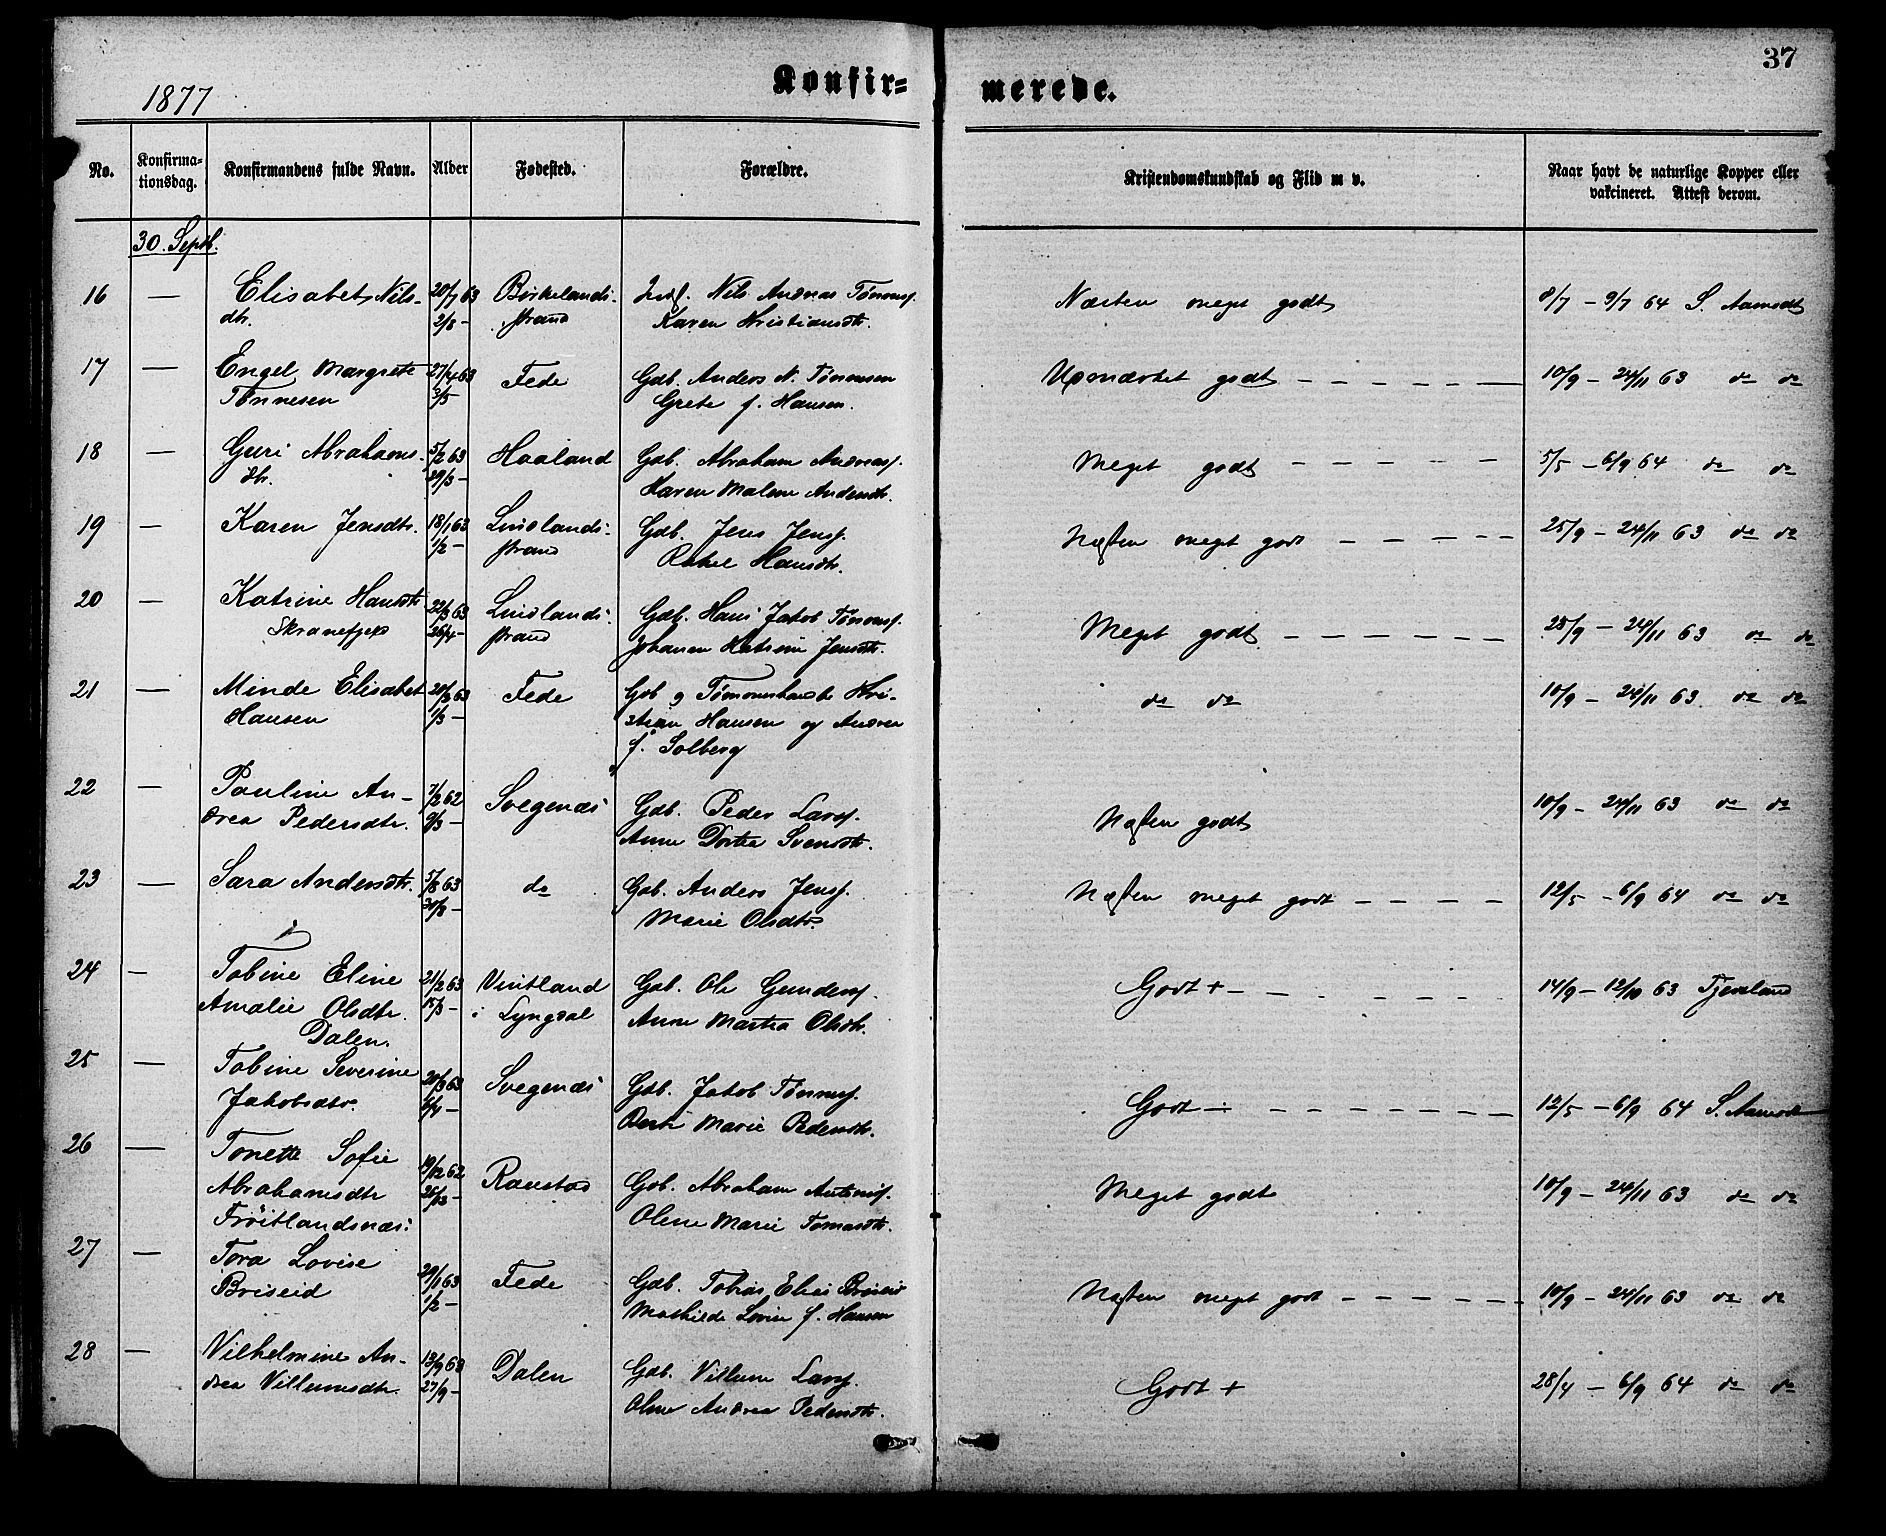 37
1877
Konfir=
merede.
No.
Konfirma-
tionsdag.
Konfirmandens fulde Navn.
Alder
Fødested.
Forældre.
Kristendomskundskab og Flid m v.
Naar havt de naturlige Kopper eller
vakcineret. Attest derom.
30. Septb.
16 — Elisabet Nils- 20/7 63 Birkelands- Nils Andreas Tønness. Næsten meget godt 8/7 – 9/7 64 S. Aamodt
dtr. 2/8 – strand Karen Kristiansdtr.
17 — Engel Margrete 27/4 63 Fede Gdb. Anders N. Tønnesen Udmærket godt – – – – – 10/9 – 24/11 63 do do
Tønnesen 3/5 Grete f. Hansen.
18 — Guri Abrahams- 5/2 63 Haaland Gdb. Abraham Andreass. Meget godt – – – – – 5/5 – 6/9 64 do do
dtr. 29/3 – Karen Malene Andersdtr.
19 — Karen Jensdtr. 18/1 63 Lindlands- Gdb. Jens Jenss. Næsten meget godt – – – – – 25/9 – 24/11 63 do do
1/2 – strand Rakel Hansdtr.
20 — Katrine Hansdtr 22/3 63 Lindlands- Gdb. Hans Jakob Tønness. Meget godt – – – – – 25/9 – 24/11 63 do do
26/4 – strand Johanne Katrine Jensdtr.
21 — Minde Elisabet 20/3 63 Fede Gdb og Kri- do do 10/9 – 24/11 63 do do
Hansen 1/3 – stian Hansen og Andrea
f. Solberg
22 — Pauline An- 7/2 62 Svegenæs Gdb. Peder Larss. Næsten godt 10/9 – 24/11 63 do do
drea Pedersdtr. 9/3 – Anne Dortea Svensdtr.
23 — Sara Andersdtr. 5/8 63 do Gdb. Anders Jenss. Næsten meget godt – – – – 12/5 – 6/9 64 do do
30/8 – Marie Olsdtr.
24 — Tobine Eline 21/2 63 Vintland Gdb. Ole Gunders. Godt + – – – – – 14/9 – 12/10 63 Tjersland
Amalie Olsdtr. 15/3 – i Lyngdal Anne Martea Olsdtr.
Dalen.
25 — Tobine Severine 20/3 63 Svegenæs Gdb. Jakob Tønness. Godt ÷ – – – – – 12/5 – 6/9 64 S. Aamodt
Jakobsdtr. Berte Marie Pedersdtr.
26 — Tonette Sofie 19/12 62 Raustad Gdb. Abraham Antonis. Meget godt 10/9 – 24/11 63 do do
Abrahamsdtr 26/12 – Olene Marie Tomasdtr.
Frøitlandsnæs.
27 — Tora Lovise 29/1 63 Fede Gdb. Tobias Elias Briseid Næsten meget godt – – – – – 10/9 – 24/11 63 do do
Briseid 1/2 – Mathilde Lovise f. Hansen
28 — Vilhelmine An- 13/9 63 Dalen Gdb. Villum Larss. Godt + 28/4 – 6/9 64 do do
drea Villumsdtr. 27/9 – Oline Andrea Pedersdtr.